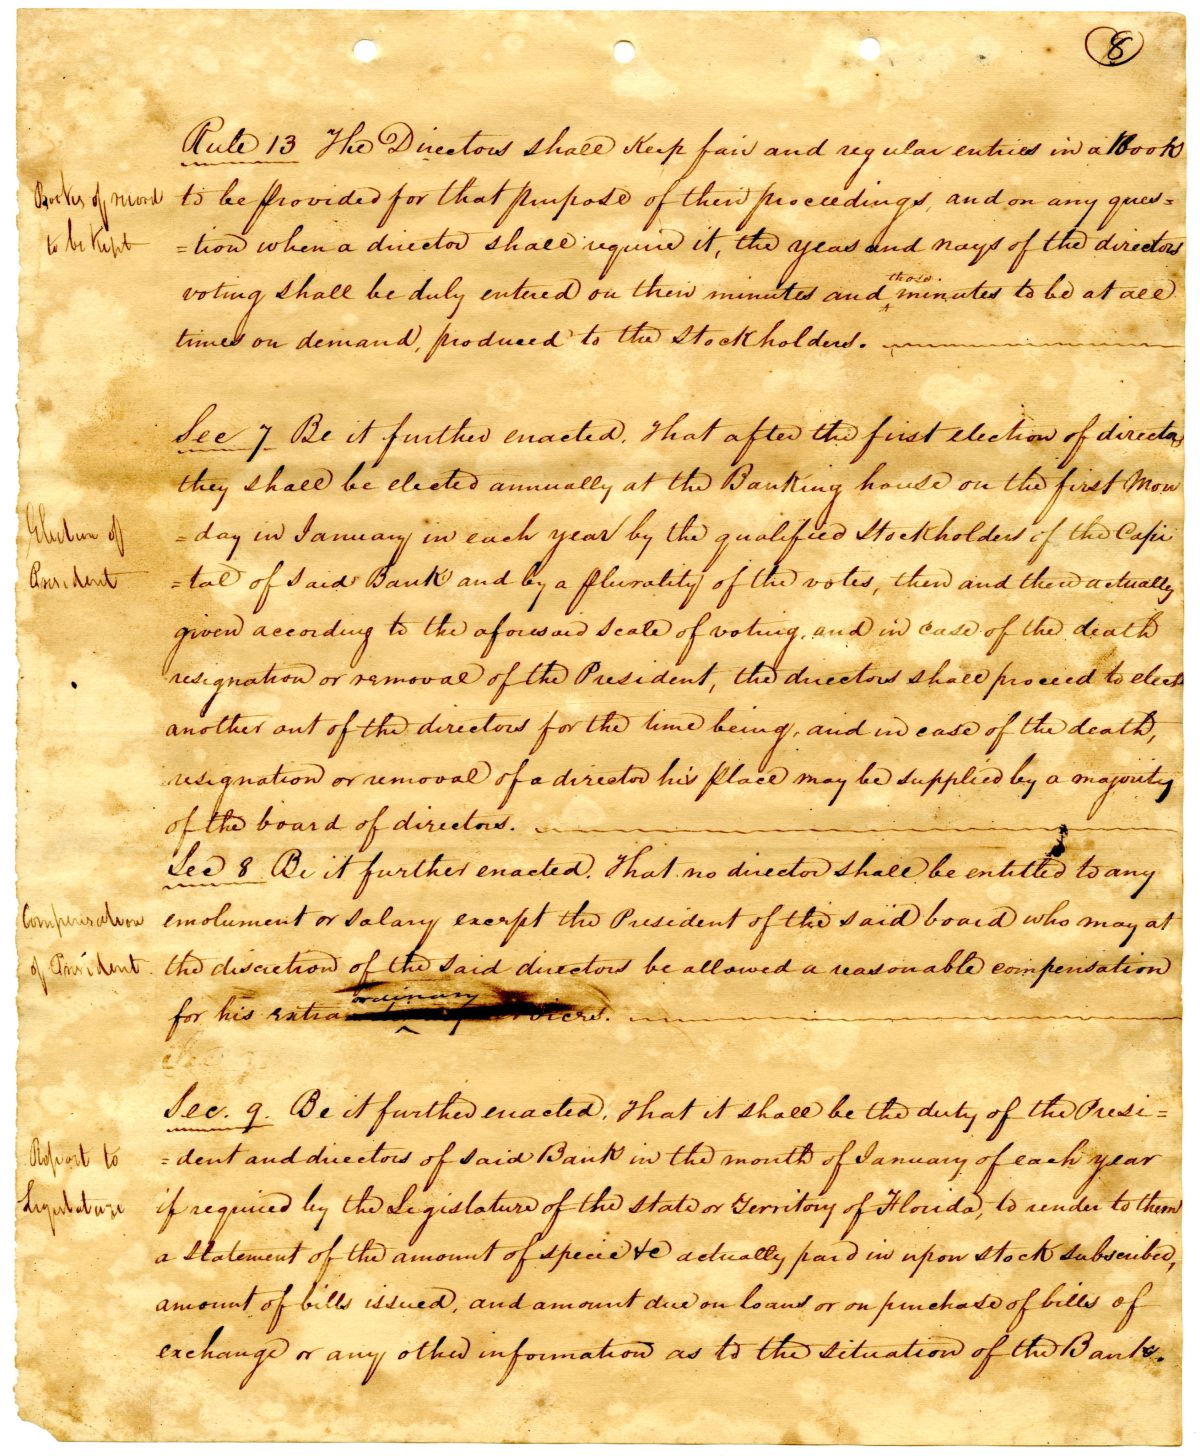 8
Rule 13 The Directors shall Keep fair and regular entries in a Book
Books of record
to be Kept
to be provided for that purpose of their proceedings, and on any ques=
=tion when a director shall require it, the yeas and nays of the directors
those
voting shall be duly entered on their minutes and minutes to be at all
times on demand, produced to the Stockholders.
Sec 7 Be it further enacted. That after the first election of directors
they shall be elected annually at the Banking house on the first Mon
Election of
President
=day in January in each year by the qualified Stockholders of the Capi
=tal of said Bank and by a plurality of the votes, then and there actually
given according to the aforesaid scale of voting, and in case of the death
resignation or removal of the President, the directors shall proceed to elect
another out of the directors for the time being, and in case of the death,
resignation or removal of a director his place may be supplied by a majority
of the board of directors.
Sec 8 Be it further enacted. That no director shall be entitled to any
Compensation
of President
emolument or salary except the President of the said board who may at
the discretion of the said directors be allowed a reasonable compensation
ordinary
for his extra services.
Sec. 9. Be it further enacted. That it shall be the duty of the Presi=
Report to
Legislature
=dent and directors of said Bank in the month of January of each year
if required by the Legislature of the state or Territory of Florida, to render to them
a statement of the amount of specie &c actually paid in upon stock subscribed,
amount of bills issued, and amount due on loans or on purchase of bills of
exchange or any other information as to the situation of the Bank.